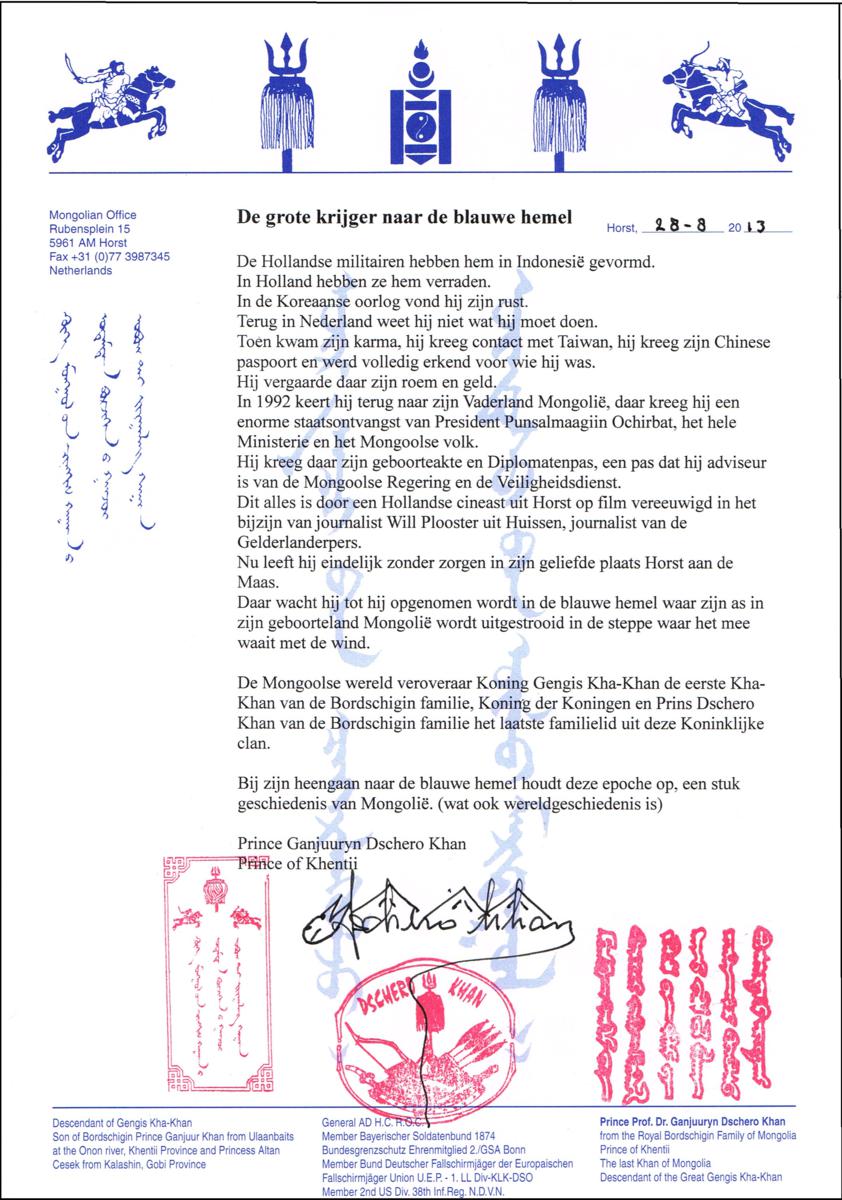 Mongolian Office
Rubensplein 15
5961 AM Horst
Fax +31 (0)77 3987345
Netherlands
De grote krijger naar de blauwe hemel
Horst, 28-8 2013
De Hollandse militairen hebben hem in Indonesië gevormd.
In Holland hebben ze hem verraden.
In de Koreaanse oorlog vond hij zijn rust.
Terug in Nederland weet hij niet wat hij moet doen.
Toen kwam zijn karma, hij kreeg contact met Taiwan, hij kreeg zijn Chinese
paspoort en werd volledig erkend voor wie hij was.
Hij vergaarde daar zijn roem en geld.
In 1992 keert hij terug naar zijn Vaderland Mongolië, daar kreeg hij een
enorme staatsontvangst van President Punsalmaagiin Ochirbat, het hele
Ministerie en het Mongoolse volk.
Hij kreeg daar zijn geboorteakte en Diplomatenpas, een pas dat hij adviseur
is van de Mongoolse Regering en de Veiligheidsdienst.
Dit alles is door een Hollandse cineast uit Horst op film vereeuwigd in het
bijzijn van journalist Will Plooster uit Huissen, journalist van de
Gelderlanderpers.
Nu leeft hij eindelijk zonder zorgen in zijn geliefde plaats Horst aan de
Maas.
Daar wacht hij tot hij opgenomen wordt in de blauwe hemel waar zijn as in
zijn geboorteland Mongolië wordt uitgestrooid in de steppe waar het mee
waait met de wind.
De Mongoolse wereld veroveraar Koning Gengis Kha-Khan de eerste Kha-
Khan van de Bordschigin familie, Koning der Koningen en Prins Dschero
Khan van de Bordschigin familie het laatste familielid uit deze Koninklijke
clan.
Bij zijn heengaan naar de blauwe hemel houdt deze epoche op, een stuk
geschiedenis van Mongolië. (wat ook wereldgeschiedenis is)
Prince Ganjuuryn Dschero Khan
Prince of Khentii
Dschero Khan
DSCHERO KHAN
Descendant of Gengis Kha-Khan
Son of Bordschigin Prince Ganjuur Khan from Ulaanbaits
at the Onon river, Khentii Province and Princess Altan
Cesek from Kalashin, Gobi Province
General AD H.C. R.O.C.
Member Bayerischer Soldatenbund 1874
Bundesgrenzschutz Ehrenmitglied 2./GSA Bonn
Member Bund Deutscher Fallschirmjäger der Europaischen
Fallschirmjäger Union U.E.P. - 1. LL Div-KLK-DSO
Member 2nd US Div. 38th Inf.Reg. N.D.V.N.
Prince Prof. Dr. Ganjuuryn Dschero Khan
from the Royal Bordschigin Family of Mongolia
Prince of Khentii
The last Khan of Mongolia
Descendant of the Great Gengis Kha-Khan